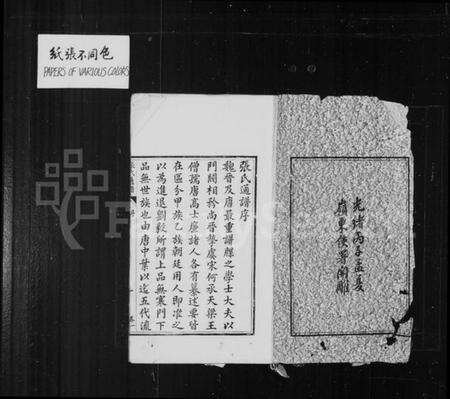 紙張不同色
PAPERS OF VARIOUS COLORS
光緒丙子孟夏
廣東使署開雕
張氏通譜序
魏晉及唐最重譜牒之學士大夫以
門閥相矜尚晉摯虞宋何承天梁王
僧孺唐高士廉諸人各有纂述要皆
在區分甲族乙族朝廷用人即准之
以為進退劉毅所謂上品無寒門下
品無世族也由唐中葉以迄五代流